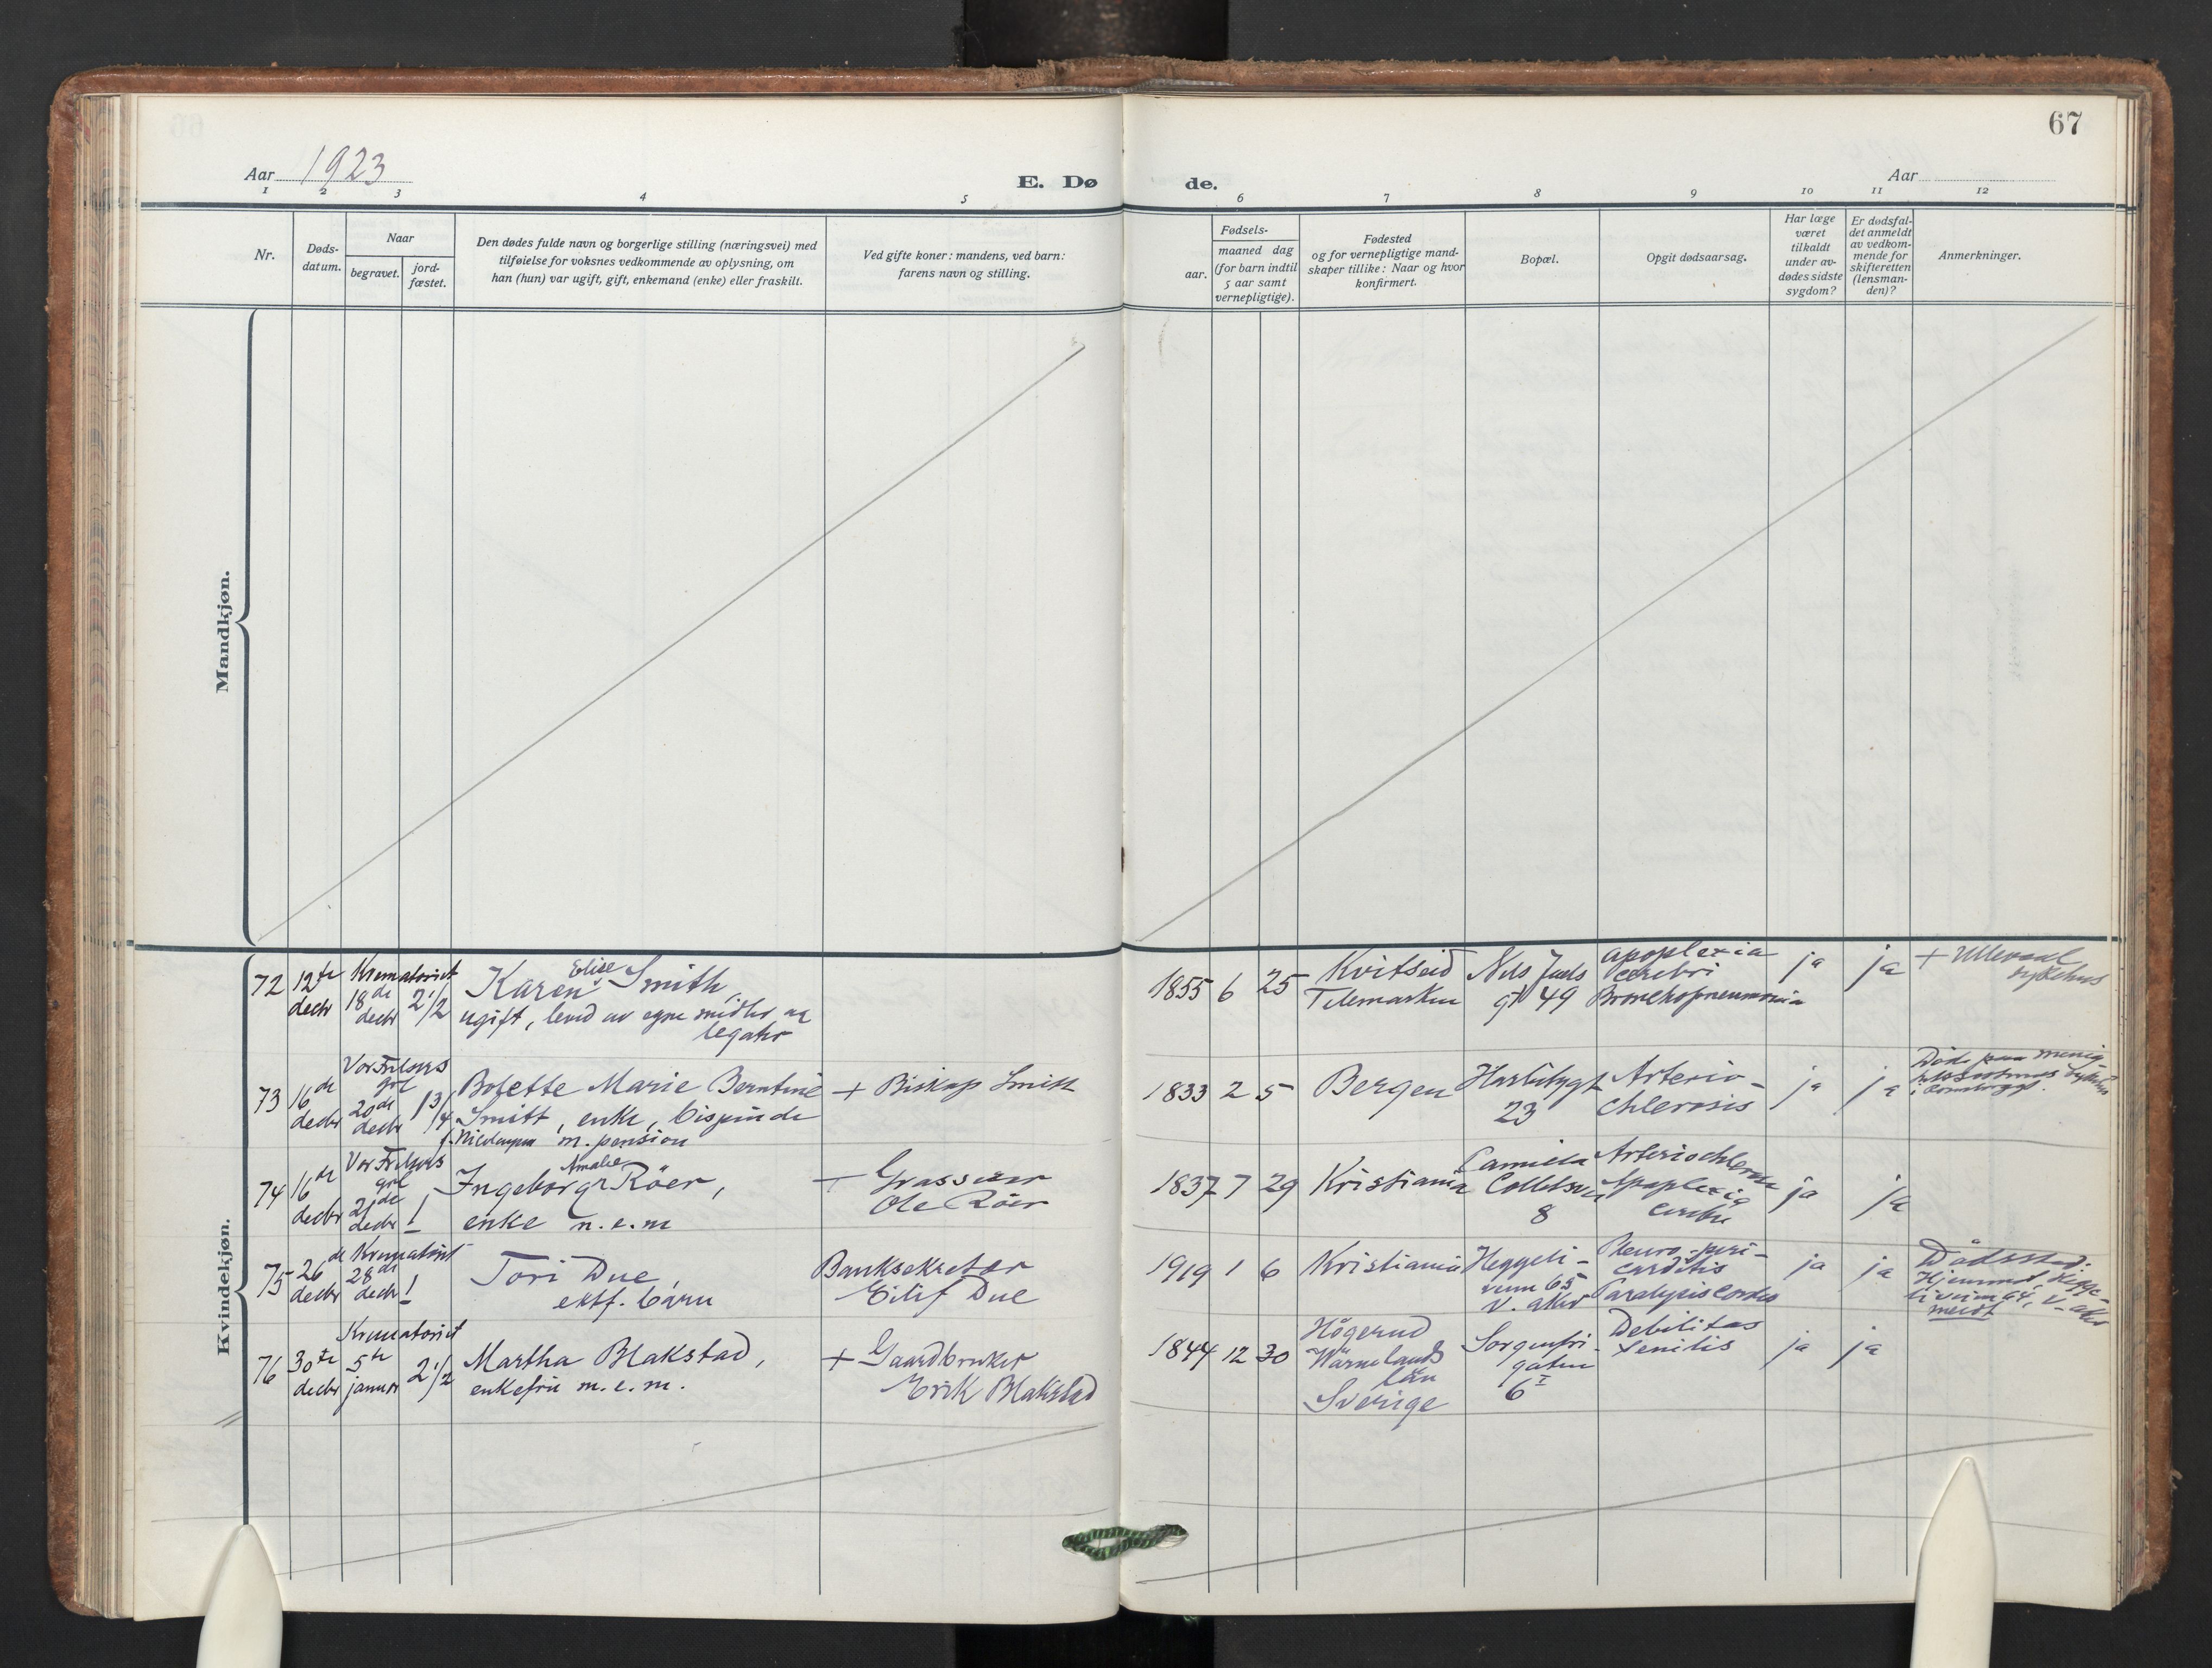 67
Aar 1923
E. Dø
de.
Aar
1 2 3 4 5 6 7 8 9 10 11 12
Nr.
Døds-
datum.
Naar
begravet.
jord-
fæstet.
Den dødes fulde navn og borgerlige stilling (næringsvei) med
tilføielse for voksnes vedkommende av oplysning, om
han (hun) var ugift, gift, enkemand (enke) eller fraskilt.
Ved gifte koner: mandens, ved barn:
farens navn og stilling.
Fødsels-
aar.
maaned dag
(for barn indtil
5 aar samt
vernepligtige).
Fødested
og for vernepligtige mand-
skaper tillike: Naar og hvor
konfirmert.
Bopæl.
Opgit dødsaarsag.
Har læge
været
tilkaldt
under av-
dødes sidste
sygdom?
Er dødsfal-
det anmeldt
av vedkom-
mende for
skifteretten
(lensman-
den)?
Anmerkninger.
Mandkjøn.
Kvindekjøn.
72
12te
decbr
Krematoriet
18de
decbr
2 1/2
Elise
Karen Smith,
ugift, levd av egne midler og
legater
1855 6 25
Kvitseid
Telemarken
Nils Juels
gt 49
apoplexia
cerebri
Bronchopneumonia
ja
ja
+ Ullevaal
sykehus
73
16de
decbr
Vor Frelsers
grl
20de
decbr
1 3/4
Bolette Marie Berntine
Smitt, enke, bispinde
m. pension
+ Biskop Smitt
1833 2 5
Bergen
23
Arterio-
chlerosis
ja
ja
74
16de
decbr
Vor Frelsers
grl
21de
decbr
1
Amalie
Ingeborg Röer,
enke n.e.m
Ole Röer
1837 7 29
Kristiania
Camilla
Colletsvei
8
Apoplexia
cerebri
ja
ja
75
26de
decbr
Krematoriet
28de
decbr
1
Tori Due,
ektf. barn
Banksekretær
Eilif Due
1919 1 6
Kristiania
Heggeli-
veien 65
V. aker
Pleuro-peri-
carditis
Paralysis cordis
ja
ja
Dödssted:
Hjemmet, Hegge-
liveien 64, V. aker
76
30te
decbr
Krematoriet
5te
januar
2 1/2
Martha Blakstad,
enkefru m.e.m.
+ Gaardbruker
Erik Blakstad
1844 12 30
Högerud
Wärmlands
län
Sverige
Sorgenfri-
gaten
6 I
Debilitas
senilis
ja
ja